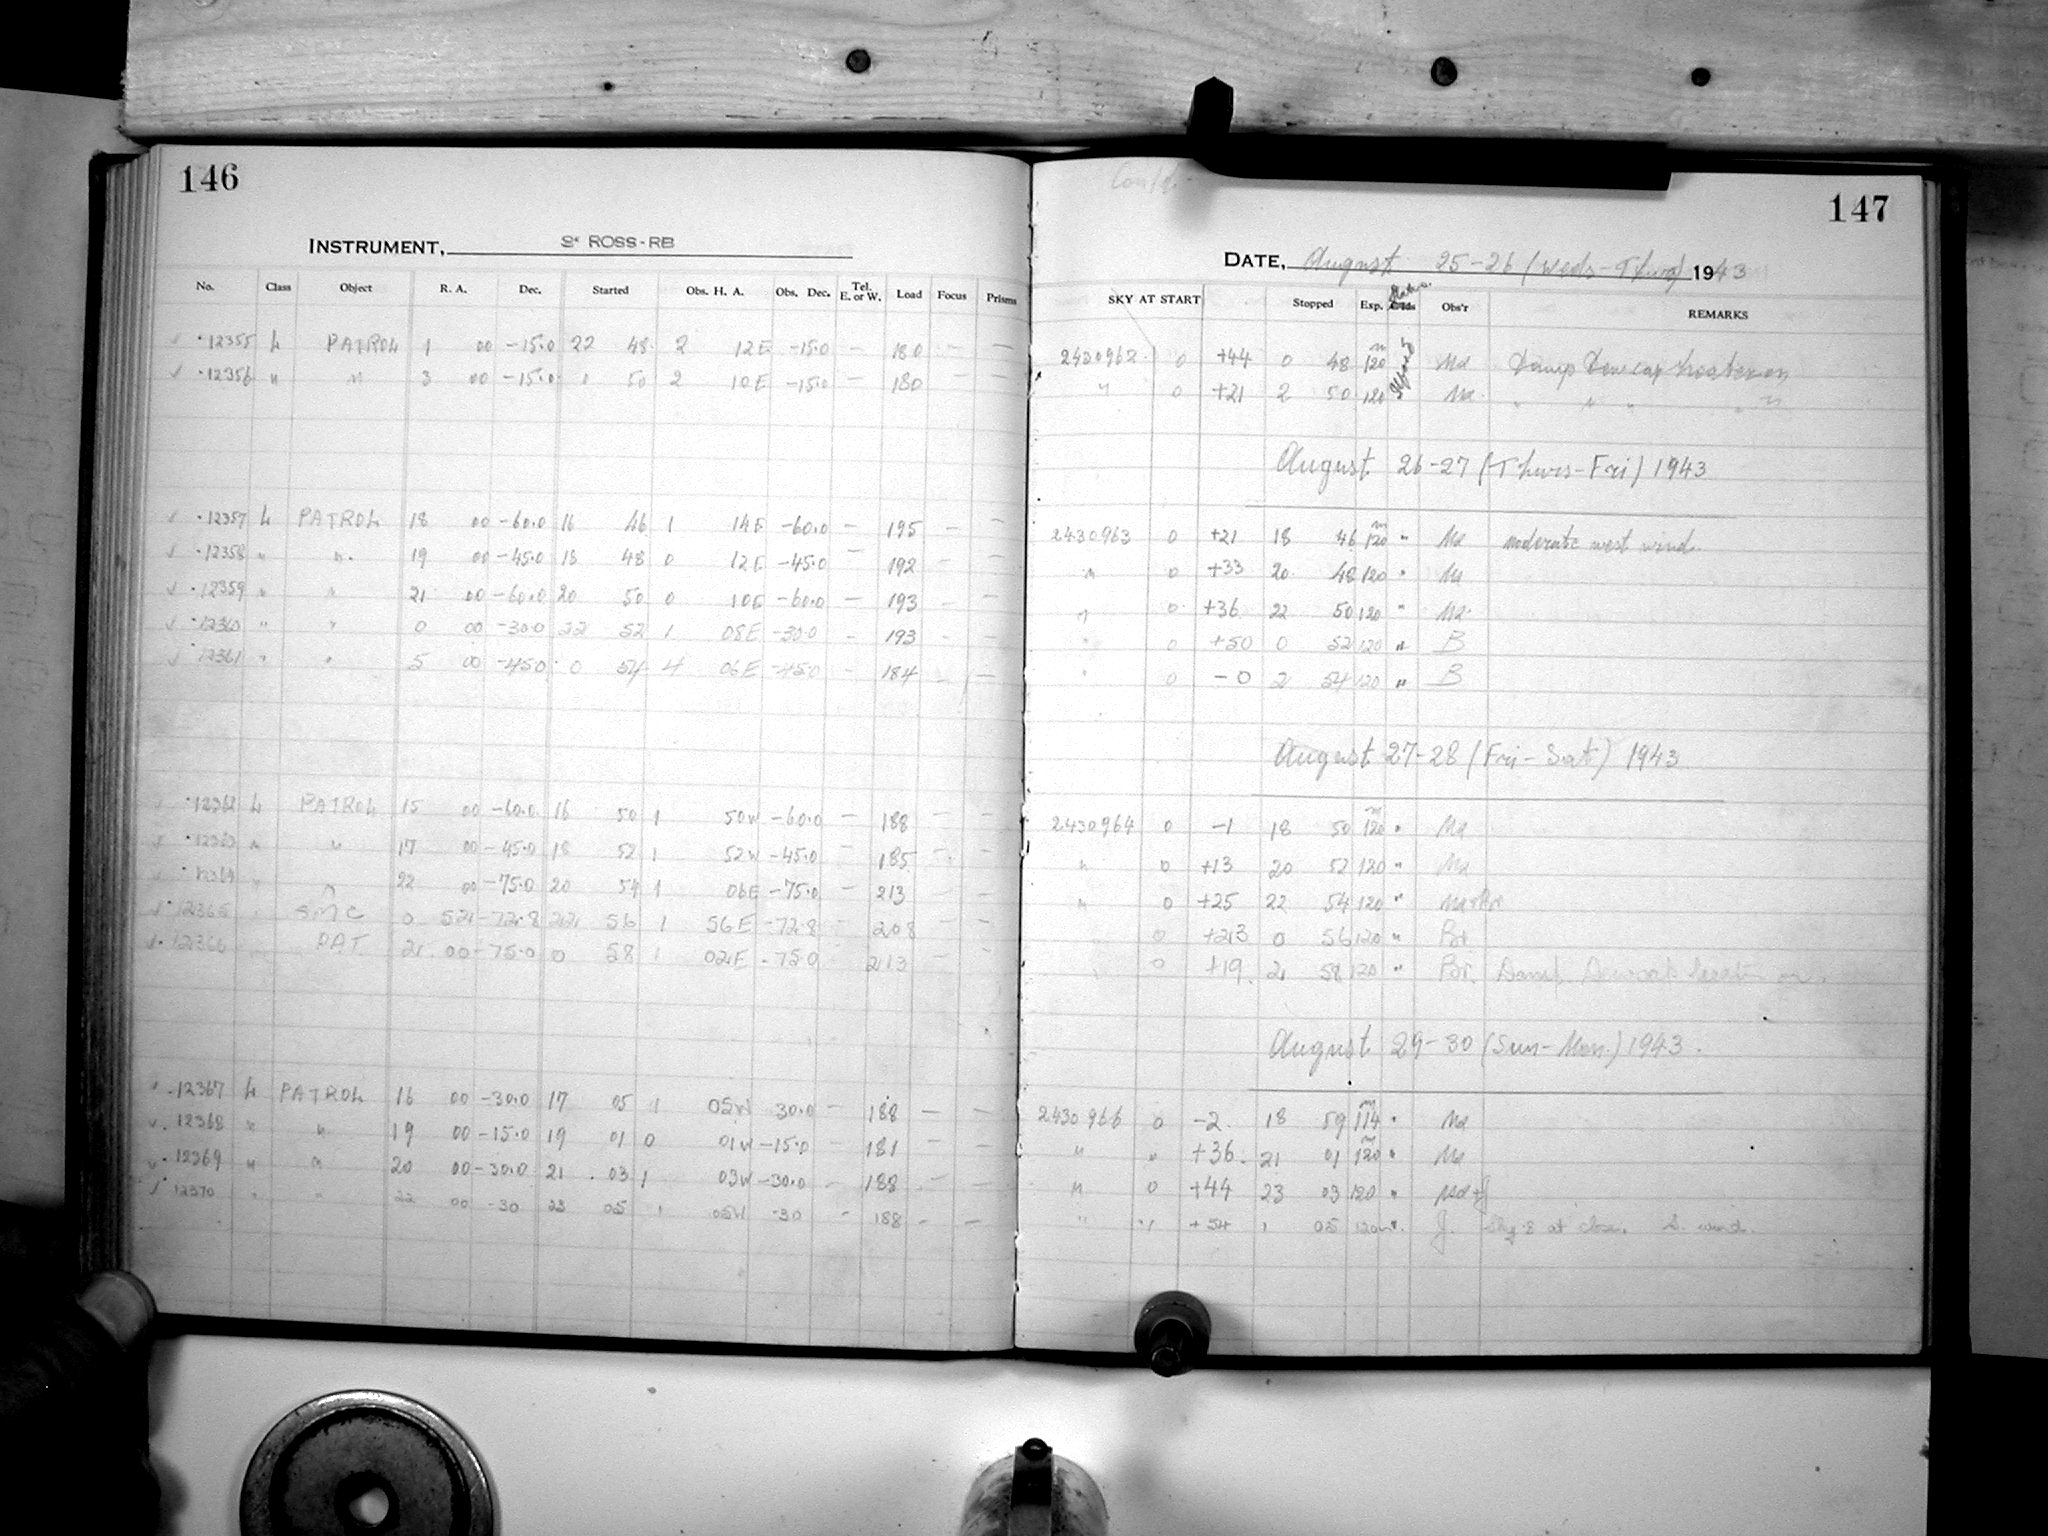 146
INSTRUMENT, 3" ROSS-RB
No. Class Object R. A. Dec. Started Obs. H. A. Obs. Dec. Tel. E. or W. Load Focus Prisms
✓ 12355 L PATROL 1 00 -15.0 22 48 2 12E -15.0 — 180 — —
✓ 12356 " " 3 00 -15.0 0 50 2 10E -15.0 — 180
✓ 12357 L PATROL 18 00 -60.0 16 46 1 14E -60.0 — 195 — —
✓ 12358 " " 19 00 -45.0 18 48 0 12E -45.0 — 192 — —
✓ 12359 " " 21 00 -60.0 20 50 0 10E -60.0 — 193 — —
✓ 12360 " " 0 00 -30.0 22 52 1 08E -30.0 — 193 — —
✓ 12361 " " 5 00 -45.0 0 54 4 06E -45.0 — 184 — —
✓ 12362 L PATROL 15 00 -60.0 16 50 1 50W -60.0 — 188 — —
✓ 12363 " " 17 00 -45.0 18 52 1 52W -45.0 — 185 — —
✓ 12364 " " 22 00 -75.0 20 54 1 06E -75.0 — 213 — —
✓ 12365 " SMC 0 52 -72.8 22 56 1 56E -72.8 — 208 — —
✓ 12366 PAT. 2 00 -75.0 0 58 1 02E -75.0 — 213 — —
✓ 12367 L PATROL 16 00 -30.0 17 05 1 05W 30.0 — 188 — —
✓ 12368 " " 19 00 -15.0 19 01 0 01W -15.0 — 181 — —
✓ 12369 " " 20 00 -30.0 21 03 1 03W -30.0 — 188 — —
✓ 12370 " " 22 00 -30 23 05 1 05W -30 — 188 — —
Contd.
147
DATE, August 25-26 (Weds-Thurs) 1943
SKY AT START Stopped Exp. Obs'r REMARKS
2430962 0 +44 0 48 120m Ma Damp Dew cap heater on
" 0 +21 2 50 120 Ma " " " " "
August 26-27 (Thurs-Fri) 1943
2430963 0 +21 18 46 120m " Ma moderate west wind.
" 0 +33 20 48 120 " Ma
" 0 +36 22 50 120 " Ma
" 0 +50 0 52 120 " B
" 0 -0 2 54 120 " B
August 27-28 (Fri-Sat) 1943
2430964 0 -1 18 50 120m " Ma
" 0 +13 20 52 120 " Ma
" 0 +25 22 54 120 "
0 +23 0 56 120 " Br.
0 +19 2 58 120 " Br. Damp. Dewcap heater on.
August 29-30 (Sun-Mon.) 1943.
2430966 0 -2 18 59 114m " Ma
" " +36 21 01 120m " Ma
" 0 +44 23 03 120 " Ma+J
" " +54 1 05 120 " J. Sky 8 at close. S. wind.